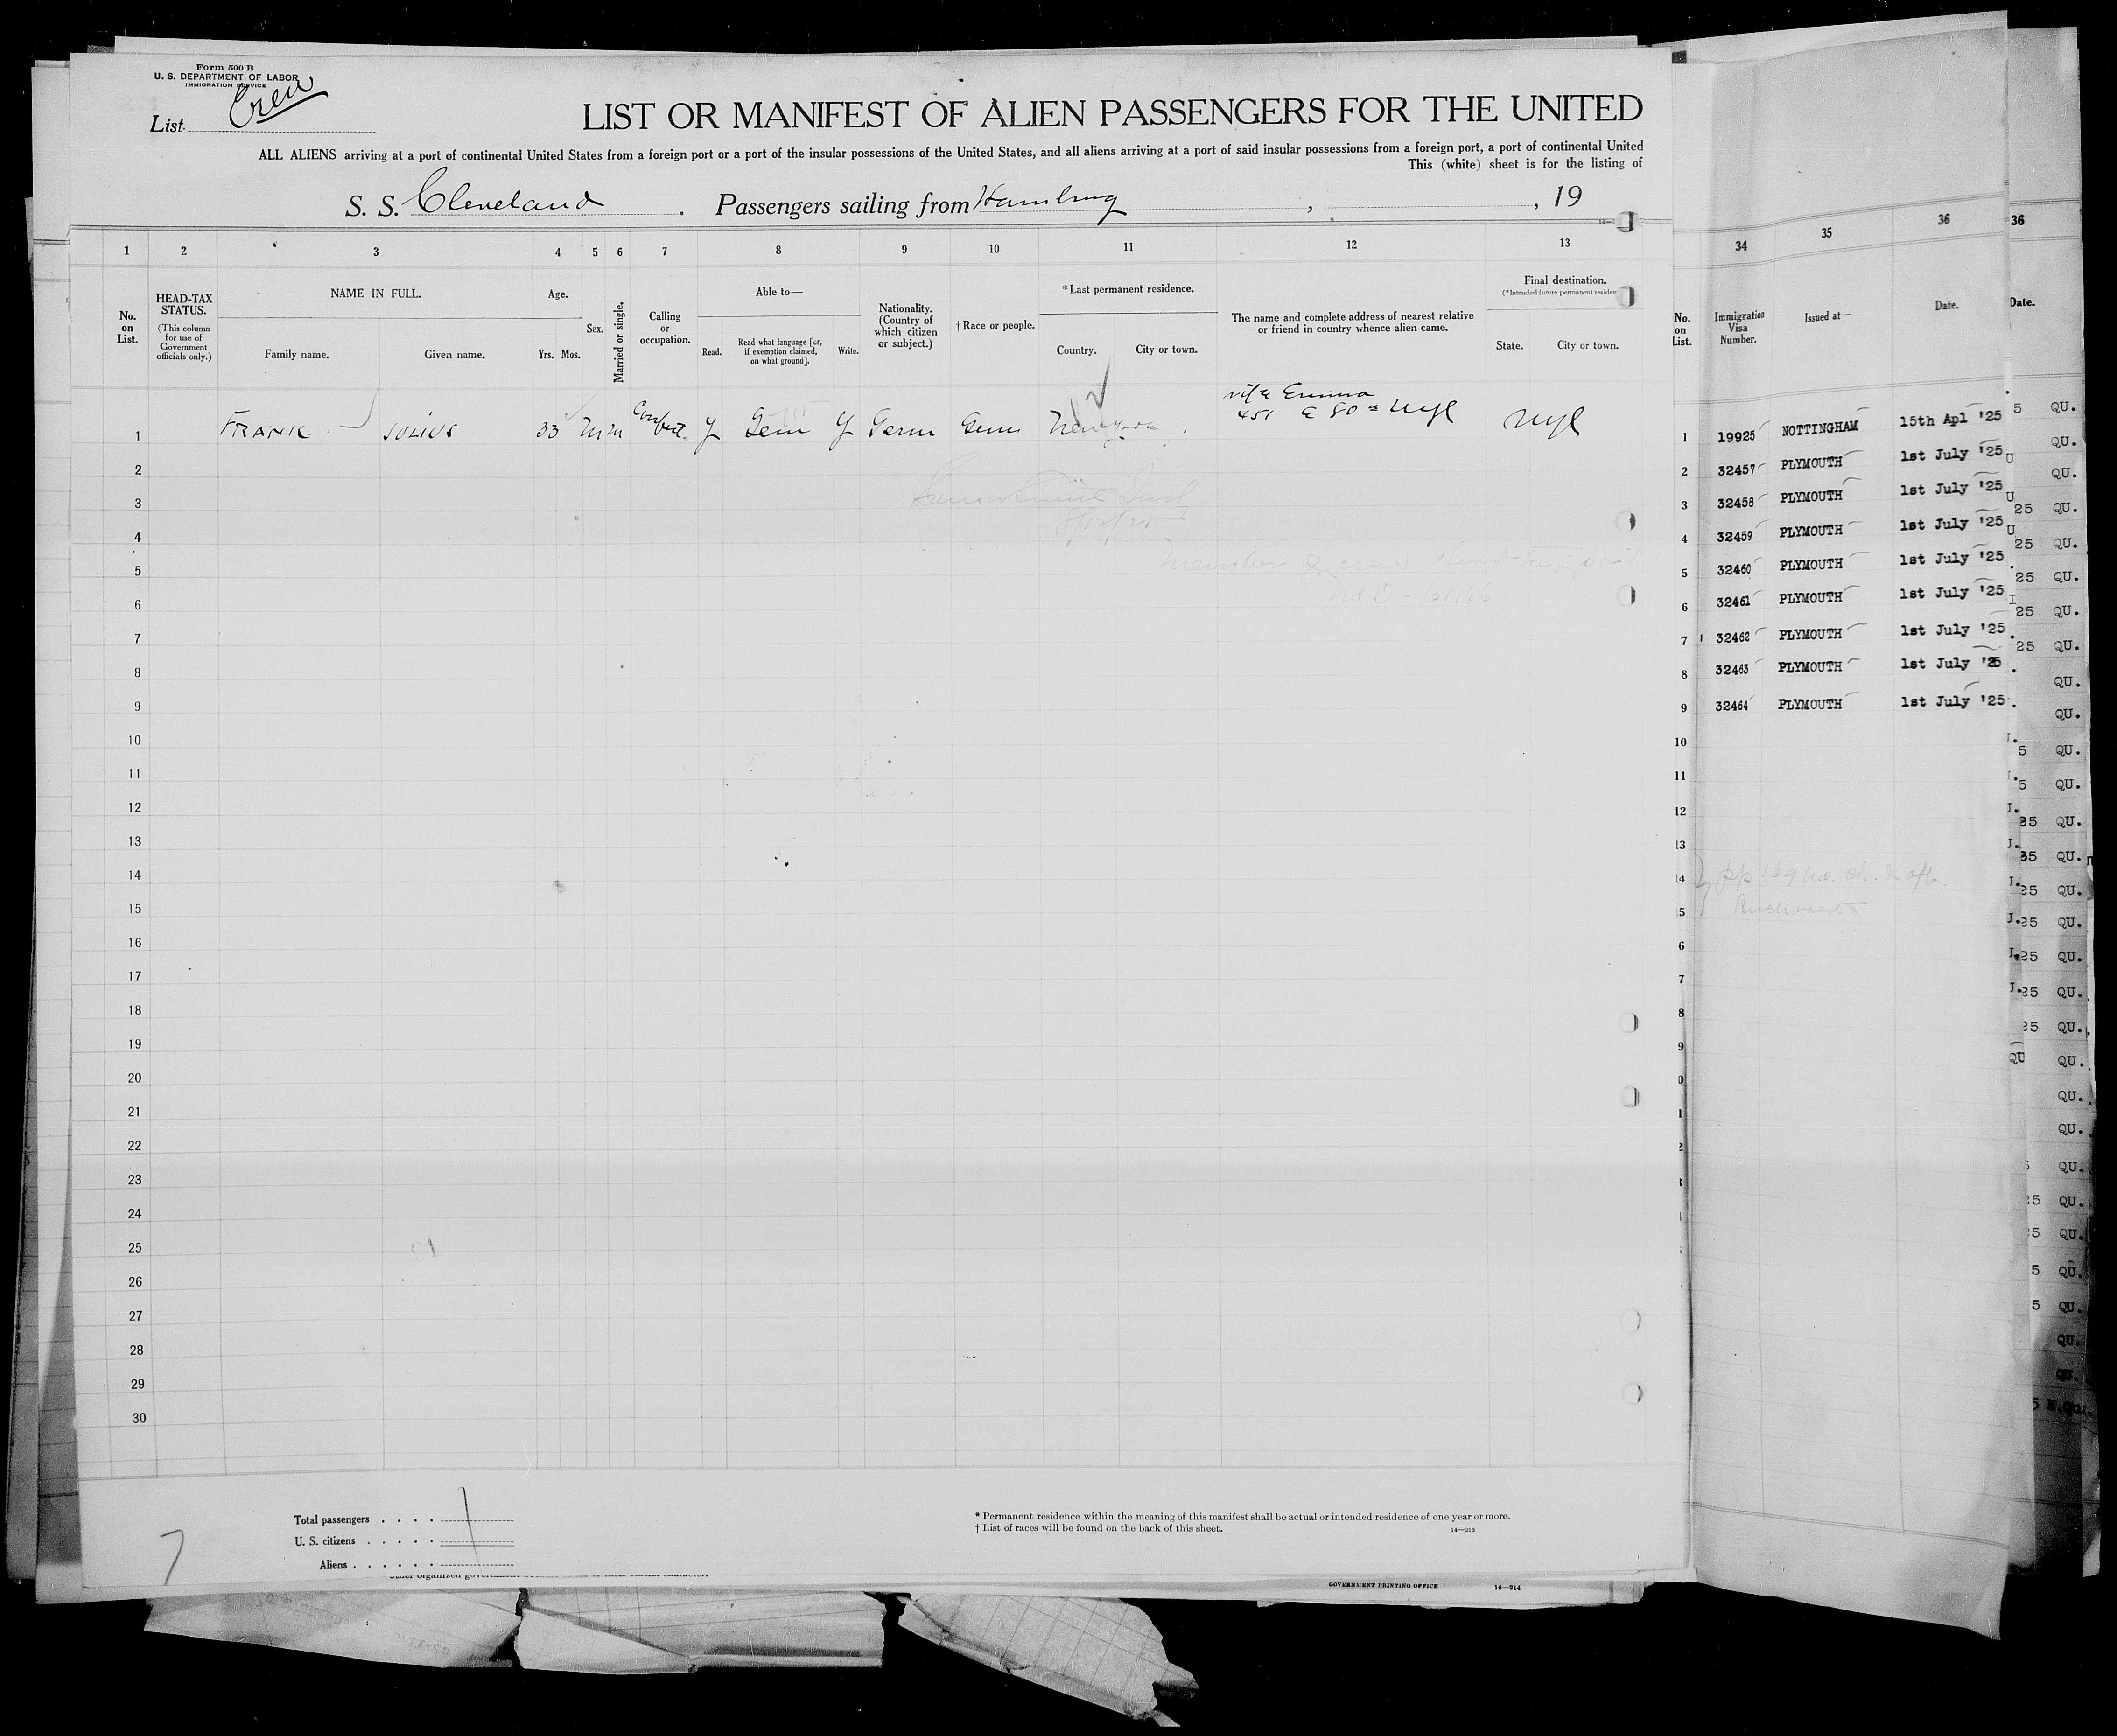 Form 500 B
U. S. DEPARTMENT OF LABOR
IMMIGRATION SERVICE
List Crew
LIST OR MANIFEST OF ALIEN PASSENGERS FOR THE UNITED
ALL ALIENS arriving at a port of continental United States from a foreign port or a port of the insular possessions of the United States, and all aliens arriving at a port of said insular possessions from a foreign port, a port of continental United
This (white) sheet is for the listing of
S. S. Cleveland . Passengers sailing from Hamburg , , 19
1 2 3 4 5 6 7 8 9 10 11 12 13
No. on List.
HEAD-TAX STATUS.
(This column for use of Government officials only.)
NAME IN FULL.
Family name. Given name.
Age.
Yrs. Mos.
Sex.
Married or single.
Calling or occupation.
Able to—
Read. Read what language [or, if exemption claimed, on what ground]. Write.
Nationality. (Country of which citizen or subject.)
† Race or people.
* Last permanent residence.
Country. City or town.
The name and complete address of nearest relative or friend in country whence alien came.
Final destination.
State. City or town.
wife Emma
1 FRANK JULIUS 33 m m y Germ y Germ Germ New York 451 E 80th NYC NYC
2
3
4
5
6
7
8
9
10
11
12
13
14
15
16
17
18
19
20
21
22
23
24
25
26
27
28
29
30
Total passengers . . . .
U. S. citizens . . . . .
Aliens . . . . . .
7
* Permanent residence within the meaning of this manifest shall be actual or intended residence of one year or more.
† List of races will be found on the back of this sheet.
14—213
GOVERNMENT PRINTING OFFICE 14—214
34 35 36
No. on List.
Immigration Visa Number.
Issued at—
Date.
1 19925 NOTTINGHAM 15th Apl '25
2 32457 PLYMOUTH 1st July '25
3 32458 PLYMOUTH 1st July '25
4 32459 PLYMOUTH 1st July '25
5 32460 PLYMOUTH 1st July '25
6 32461 PLYMOUTH 1st July '25
7 32462 PLYMOUTH 1st July '25
8 32463 PLYMOUTH 1st July '25
9 32464 PLYMOUTH 1st July '25
10
11
12
36
Date.
QU.